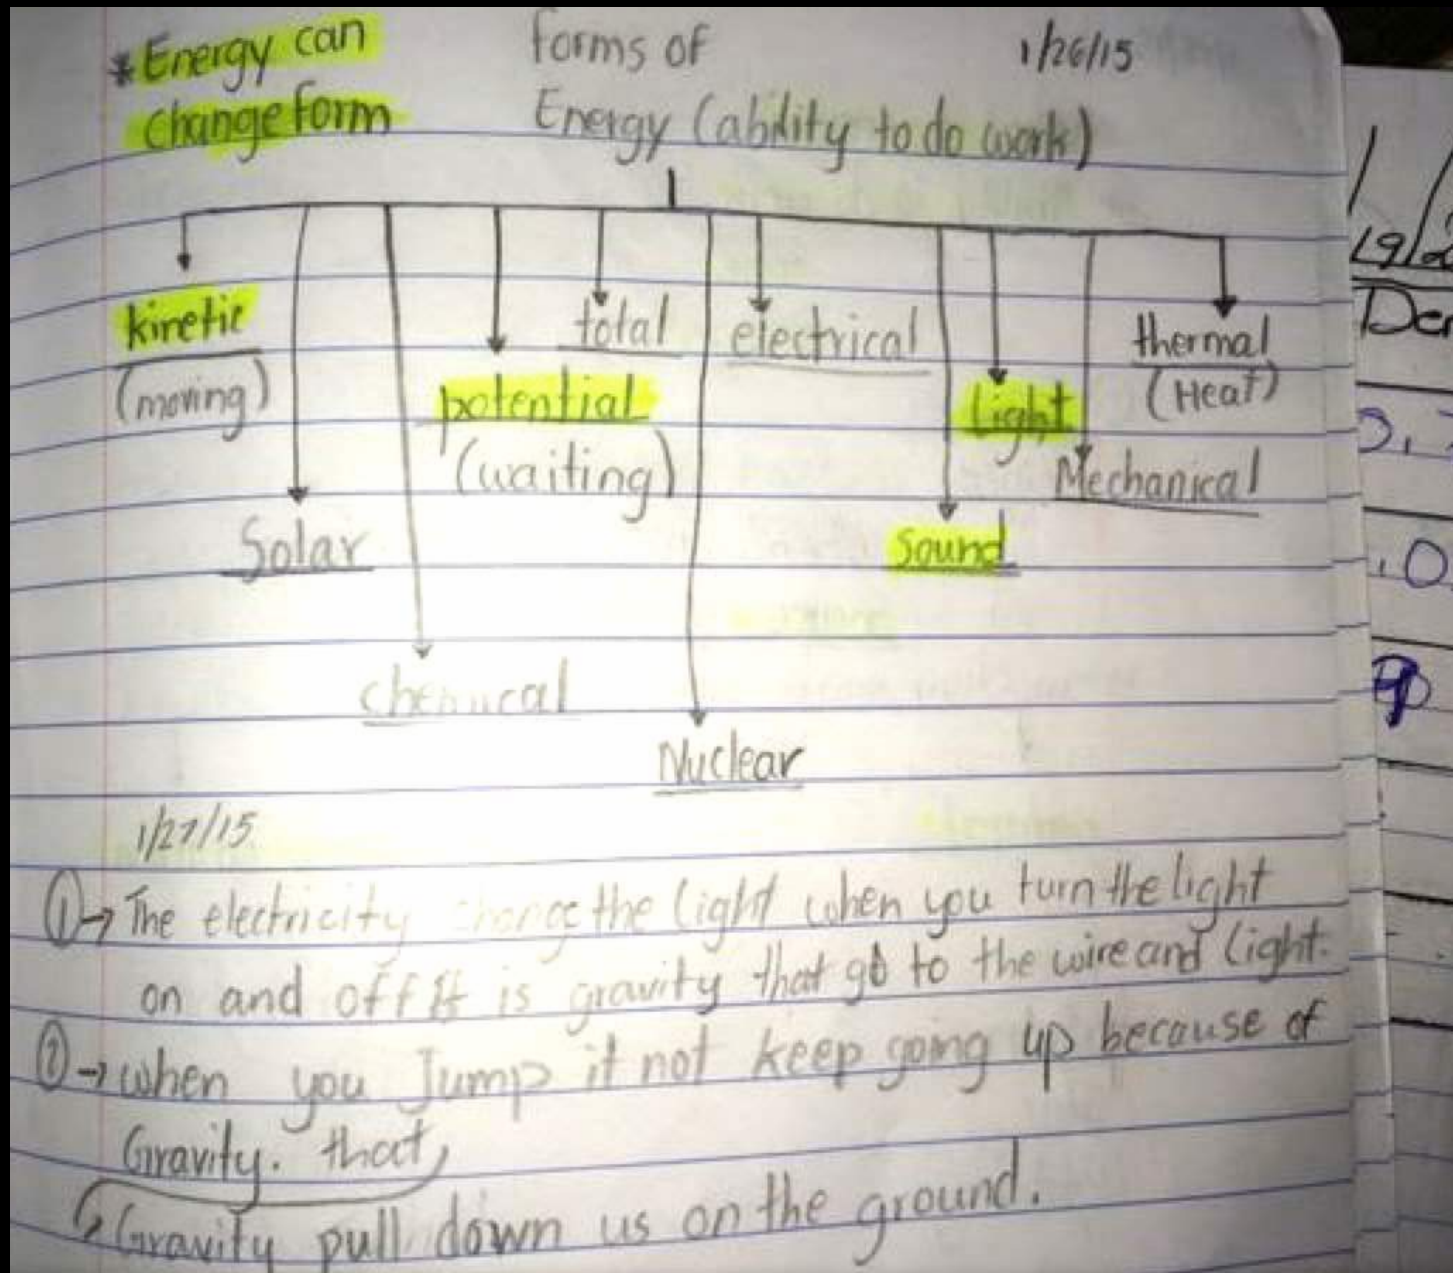 *Energy can
change form
forms of
Energy (ability to do work)
1/26/15
kinetic
(moving)
Solar
chemical
potential
(waiting)
total
Nuclear
electrical
Sound
Light
Mechanical
thermal
(Heat)
1/27/15
① → The electricity change the light when you turn the light
on and off It is gravity that go to the wire and light.
② → when you Jump it not keep going up because of
Gravity. that
Gravity pull down us on the ground.